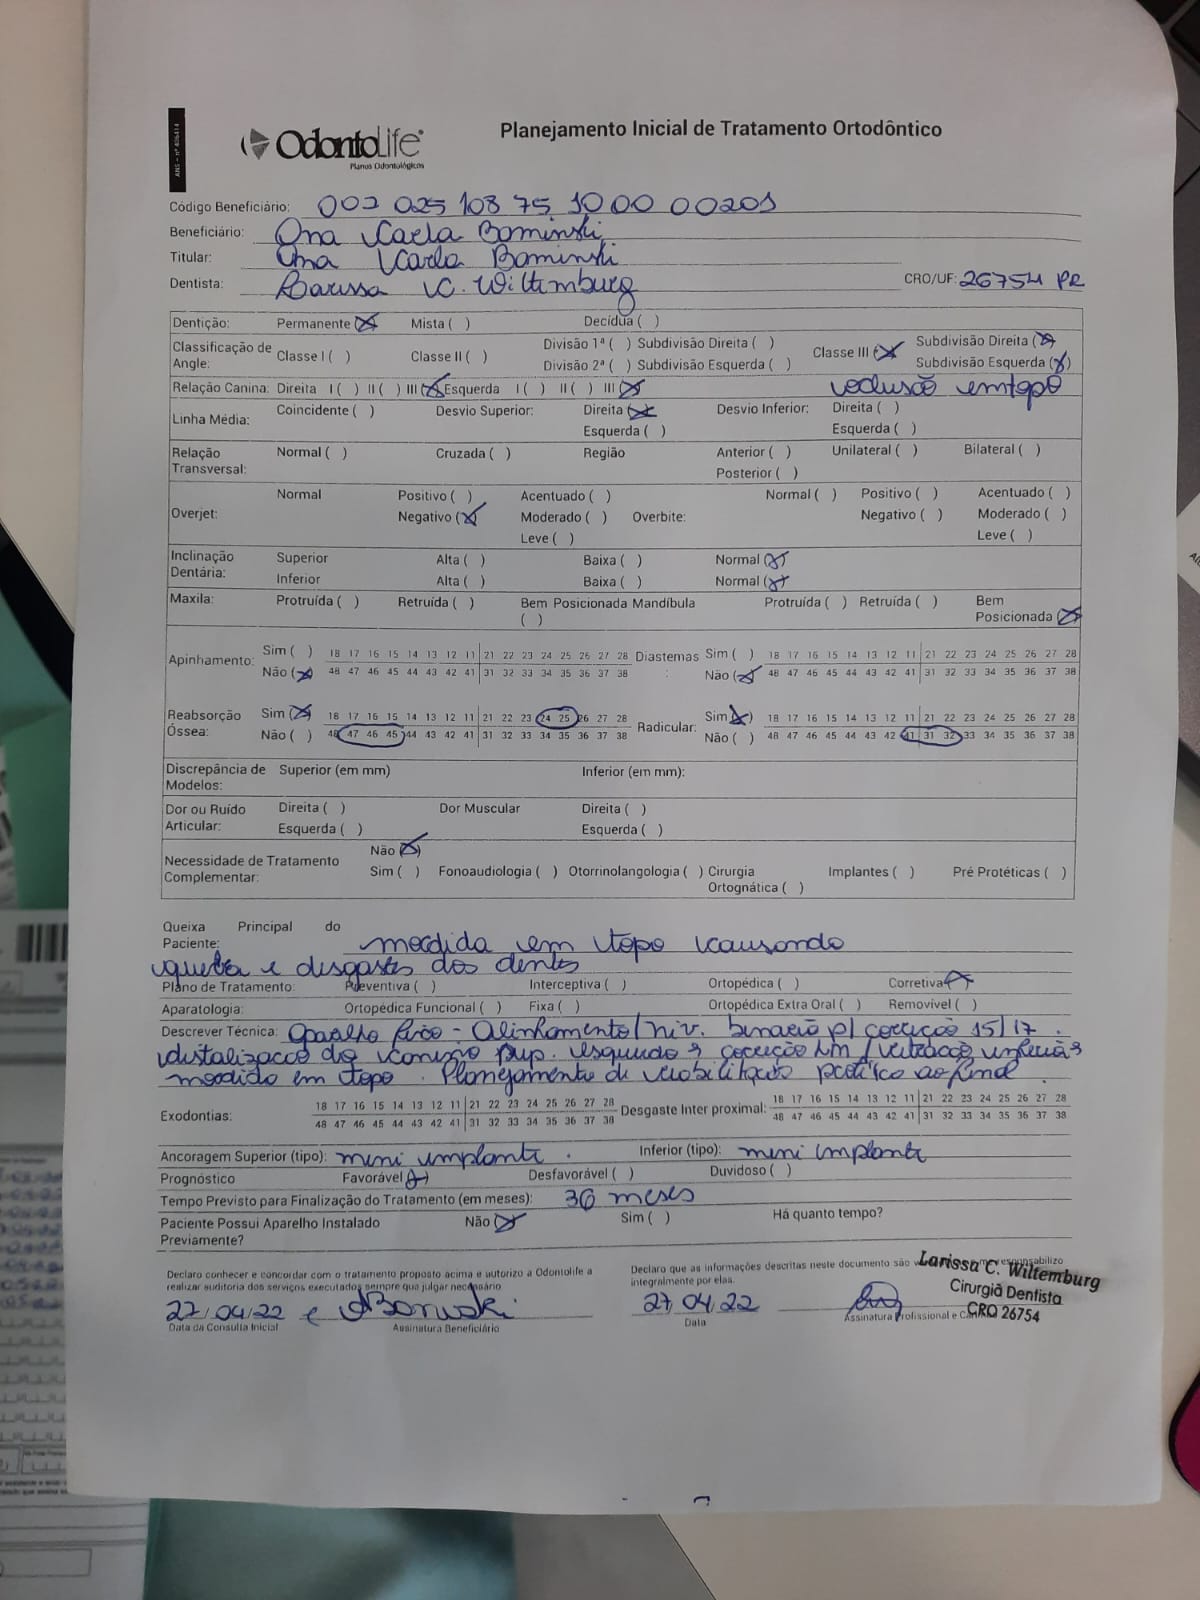 ANS - nº 406414
OdontoLife
Planos Odontológicos
Planejamento Inicial de Tratamento Ortodôntico
Código Beneficiário: 002 025 108 75 1000 00201
Beneficiário: Ana Karla Bominski
Titular: Ana Karla Bominski
Dentista: Larissa C. Wiltemburg CRO/UF: 26754 PR
Dentição: Permanente (X) Mista ( ) Decídua ( )
Classificação de Angle: Classe I ( ) Classe II ( ) Divisão 1ª ( ) Subdivisão Direita ( ) Classe III (X) Subdivisão Direita (X)
Divisão 2ª ( ) Subdivisão Esquerda ( ) Subdivisão Esquerda (X)
Relação Canina: Direita I ( ) II ( ) III (X) Esquerda I ( ) II ( ) III (X) oclusão em topo
Linha Média: Coincidente ( ) Desvio Superior: Direita (X) Desvio Inferior: Direita ( )
Esquerda ( ) Esquerda ( )
Relação Transversal: Normal ( ) Cruzada ( ) Região Anterior ( ) Unilateral ( ) Bilateral ( )
Posterior ( )
Normal Positivo ( ) Acentuado ( ) Normal ( ) Positivo ( ) Acentuado ( )
Overjet: Negativo (X) Moderado ( ) Overbite: Negativo ( ) Moderado ( )
Leve ( ) Leve ( )
Inclinação Dentária: Superior Alta ( ) Baixa ( ) Normal (X)
Inferior Alta ( ) Baixa ( ) Normal (X)
Maxila: Protruída ( ) Retruída ( ) Bem Posicionada ( ) Mandíbula Protruída ( ) Retruída ( ) Bem Posicionada (X)
Apinhamento: Sim ( ) 18 17 16 15 14 13 12 11 21 22 23 24 25 26 27 28 Diastemas: Sim ( ) 18 17 16 15 14 13 12 11 21 22 23 24 25 26 27 28
Não (X) 48 47 46 45 44 43 42 41 31 32 33 34 35 36 37 38 Não (X) 48 47 46 45 44 43 42 41 31 32 33 34 35 36 37 38
Reabsorção Óssea: Sim (X) 18 17 16 15 14 13 12 11 21 22 23 24 25 26 27 28 Radicular: Sim (X) 18 17 16 15 14 13 12 11 21 22 23 24 25 26 27 28
Não ( ) 48 47 46 45 44 43 42 41 31 32 33 34 35 36 37 38 Não ( ) 48 47 46 45 44 43 42 41 31 32 33 34 35 36 37 38
Discrepância de Modelos: Superior (em mm) Inferior (em mm):
Dor ou Ruído Articular: Direita ( ) Dor Muscular Direita ( )
Esquerda ( ) Esquerda ( )
Necessidade de Tratamento Complementar: Não (X)
Sim ( ) Fonoaudiologia ( ) Otorrinolangologia ( ) Cirurgia Ortognática ( ) Implantes ( ) Pré Protéticas ( )
Queixa Principal do Paciente: mordida em topo causando
queba e desgastes dos dentes
Plano de Tratamento: Preventiva ( ) Interceptiva ( ) Ortopédica ( ) Corretiva (X)
Aparatologia: Ortopédica Funcional ( ) Fixa ( ) Ortopédica Extra Oral ( ) Removível ( )
Descrever Técnica: Aparelho fixo - Alinhamento/niv. binário p/ correção 15/17.
distalização do canino sup. esquerdo p correção LM / retração inferior
mordida em topo. Planejamento de reabilitação protético ao final.
Exodontias: 18 17 16 15 14 13 12 11 21 22 23 24 25 26 27 28 Desgaste Inter proximal: 18 17 16 15 14 13 12 11 21 22 23 24 25 26 27 28
48 47 46 45 44 43 42 41 31 32 33 34 35 36 37 38 48 47 46 45 44 43 42 41 31 32 33 34 35 36 37 38
Ancoragem Superior (tipo): mini implante. Inferior (tipo): mini implante
Prognóstico Favorável (X) Desfavorável ( ) Duvidoso ( )
Tempo Previsto para Finalização do Tratamento (em meses): 36 meses
Paciente Possui Aparelho Instalado Previamente? Não (X) Sim ( ) Há quanto tempo?
Declaro conhecer e concordar com o tratamento proposto acima e autorizo a Odontolife a
realizar auditoria dos serviços executados sempre que julgar necessário
27/04/22
Data da Consulta Inicial Assinatura Beneficiário
Declaro que as informações descritas neste documento são responsabilizo
integralmente por elas.
27/04/22
Data Assinatura Profissional e
Larissa C. Wiltemburg
Cirurgiã Dentista
CRO 26754